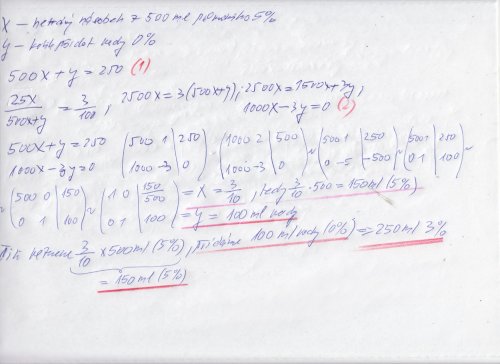 X – neznámý násobek z 500 ml původního 5%
y – kolik přidat vody 0%
500x + y = 250 (1)
25x / 500x+y = 3 / 100 ; 2500x = 3(500x+y); 2500x = 1500x + 3y; 1000x – 3y = 0 (2)
500x + y = 250 (500 1 | 250
1000x – 3y = 0 1000 –3 | 0) ~ (1000 2 | 500
1000 –3 | 0) ~ (500 1 | 250
0 –5 | –500) ~ (500 1 | 250
0 1 | 100) ~
~ (500 0 | 150
0 1 | 100) ~ (1 0 | 150/500
0 1 | 100) = x = 3/10, tedy 3/10 · 500 = 150 ml (5%)
= y = 100 ml vody
3/10 x 500 ml (5%), přidáme 100 ml vody (0%) => 250 ml 3%
= 150 ml (5%)